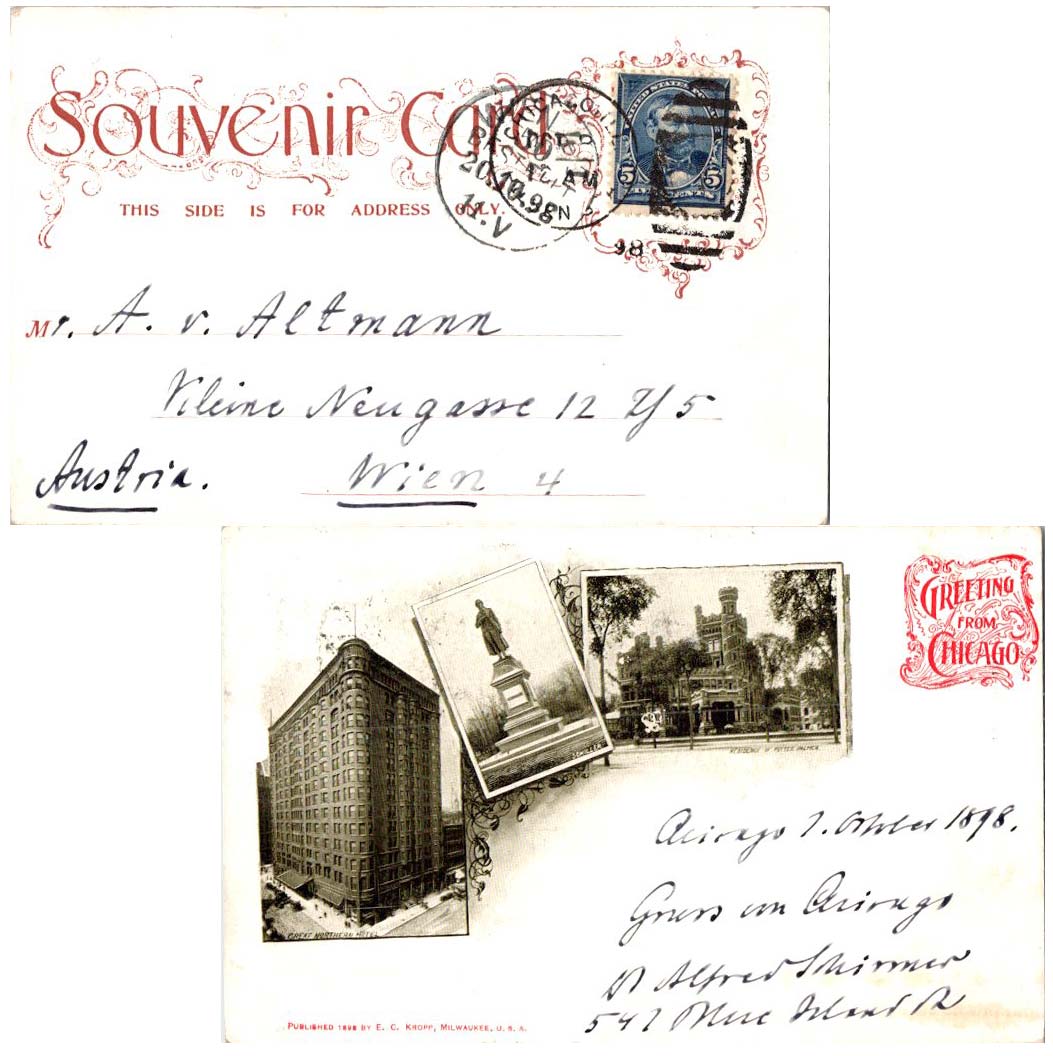 Souvenir Card
THIS SIDE IS FOR ADDRESS ONLY.
20.10.98
11.V
AM
98
5 5
Mr. A. v. Altmann
Kleine Neugasse 12 II/5
Austria. Wien 4
GREETING
FROM
CHICAGO
SCHILLER
RESIDENCE OF POTTER PALMER
GREAT NORTHERN HOTEL
Chicago 7. Oktober 1898.
Gruss von Chicago
Dr Alfred Schirmer
547 Blue Island
PUBLISHED 1898 BY E. C. KROPP, MILWAUKEE, U. S. A.